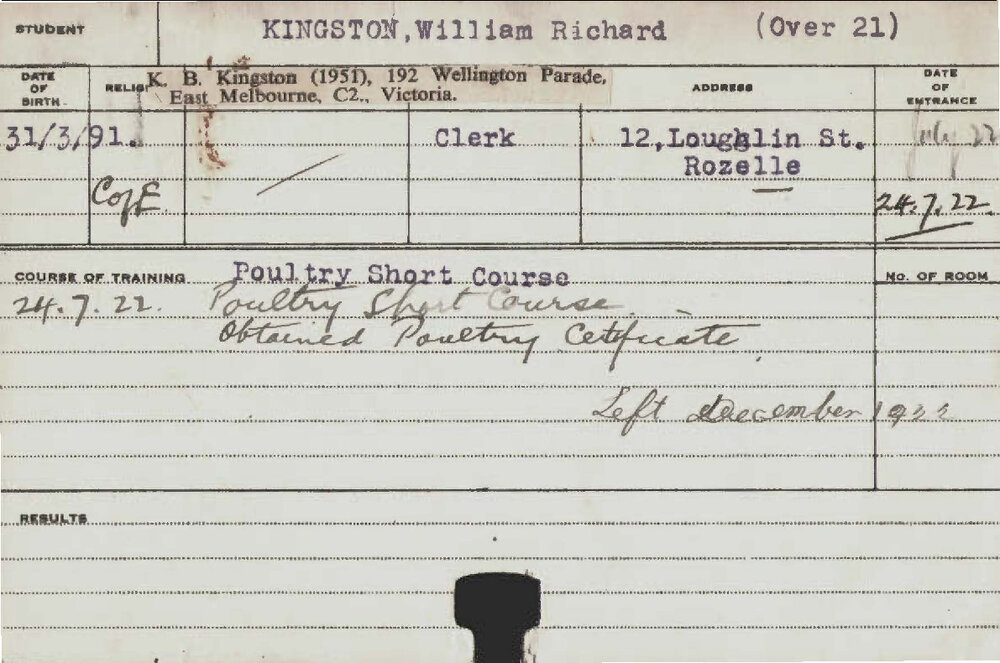 STUDENT KINGSTON,William Richard (Over 21)
DATE OF BIRTH RELIGI ADDRESS DATE OF ENTRANCE
K. B. Kingston (1951), 192 Wellington Parade,
East Melbourne, C2., Victoria.
31/3/91. Clerk 12,Loughlin St. July 22
Rozelle
C of E. 24.7.22.
COURSE OF TRAINING Poultry Short Course No. OF ROOM
24.7.22. Poultry Short Course.
Obtained Poultry Cetificate.
Left december 1922
RESULTS